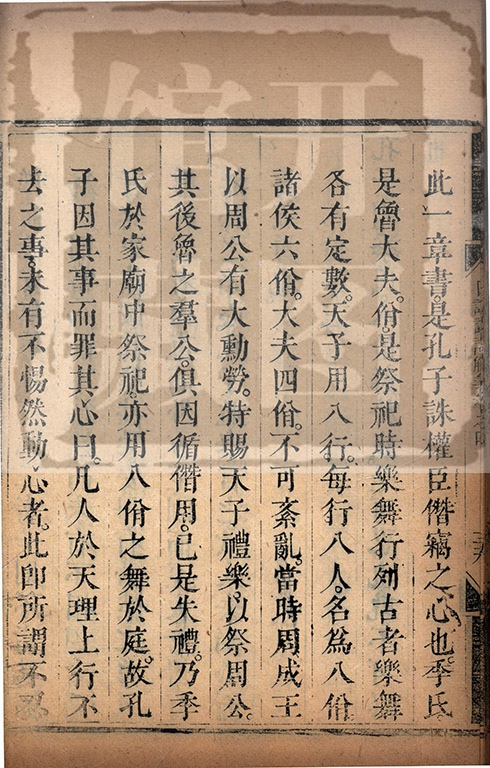 此一章書。是孔子誅權臣僭竊之心也。季氏。
是魯大夫。佾。是祭祀時樂舞行列。古者樂舞
各有定數。天子用八行。每行八人。名為八佾。
諸侯六佾。大夫四佾。不可紊亂。當時周成王
以周公有大勳勞。特賜天子禮樂。以祭周公。
其後魯之羣公。俱因循僭用。已是失禮。乃季
氏於家廟中祭祀。亦用八佾之舞於庭。故孔
子因其事而罪其心曰。凡人於天理上行不
去之事。未有不惕然動心者。此即所謂不忍